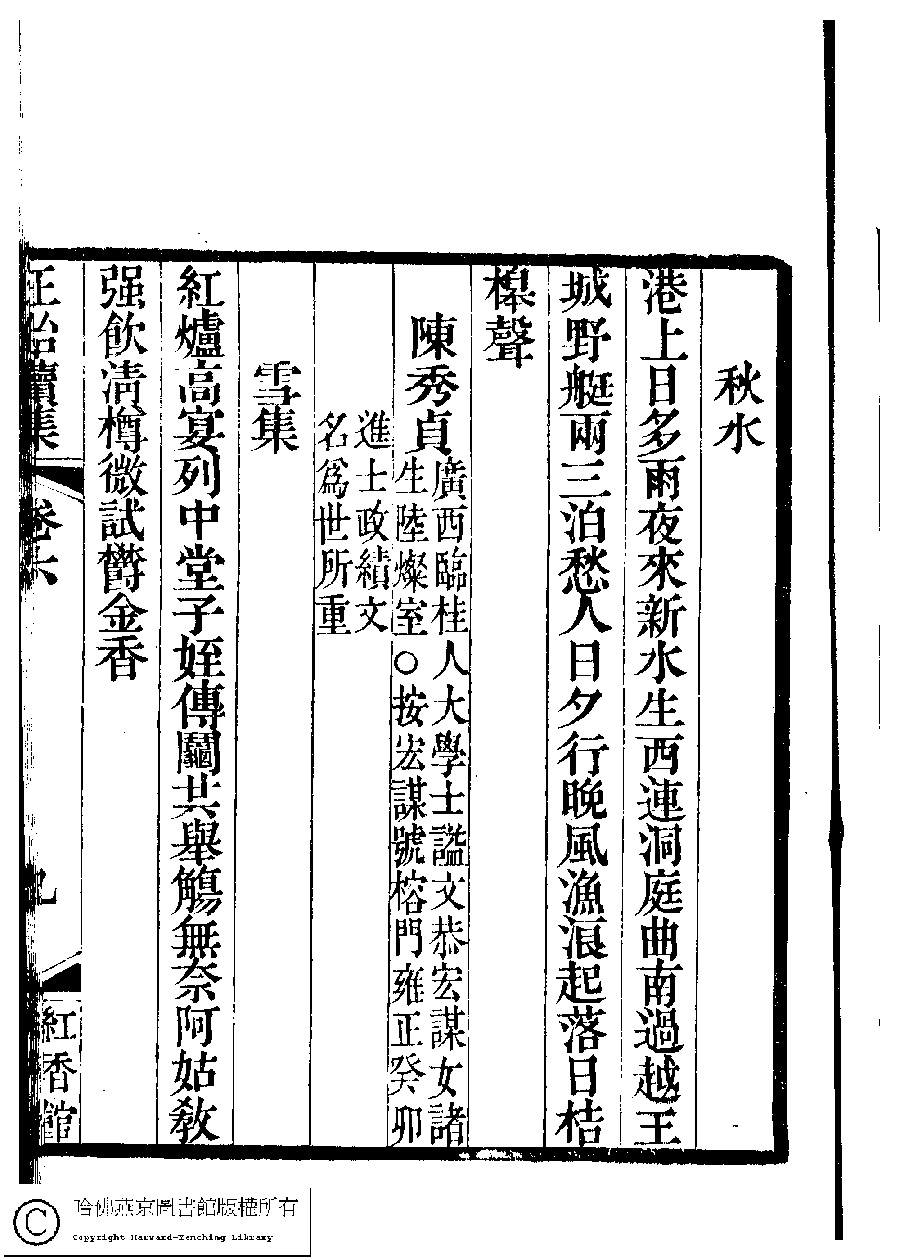 秋水
港上日多雨夜來新水生西連洞庭曲南過越王
城野艇兩三泊愁人日夕行晚風漁浪起落日桔
槹聲
陳秀貞廣西臨桂人大學士謚文恭宏謀女諸
生陸燦室○按宏謀號榕門雍正癸卯
進士政績文
名爲世所重
雪集
紅爐高宴列中堂子姪傳鬮共舉觴無奈阿姑教
强飲清樽微試欝金香
正始續集 卷六 紅香館
哈佛燕京圖書館版權所有
Copyright Harvard-Yenching Library